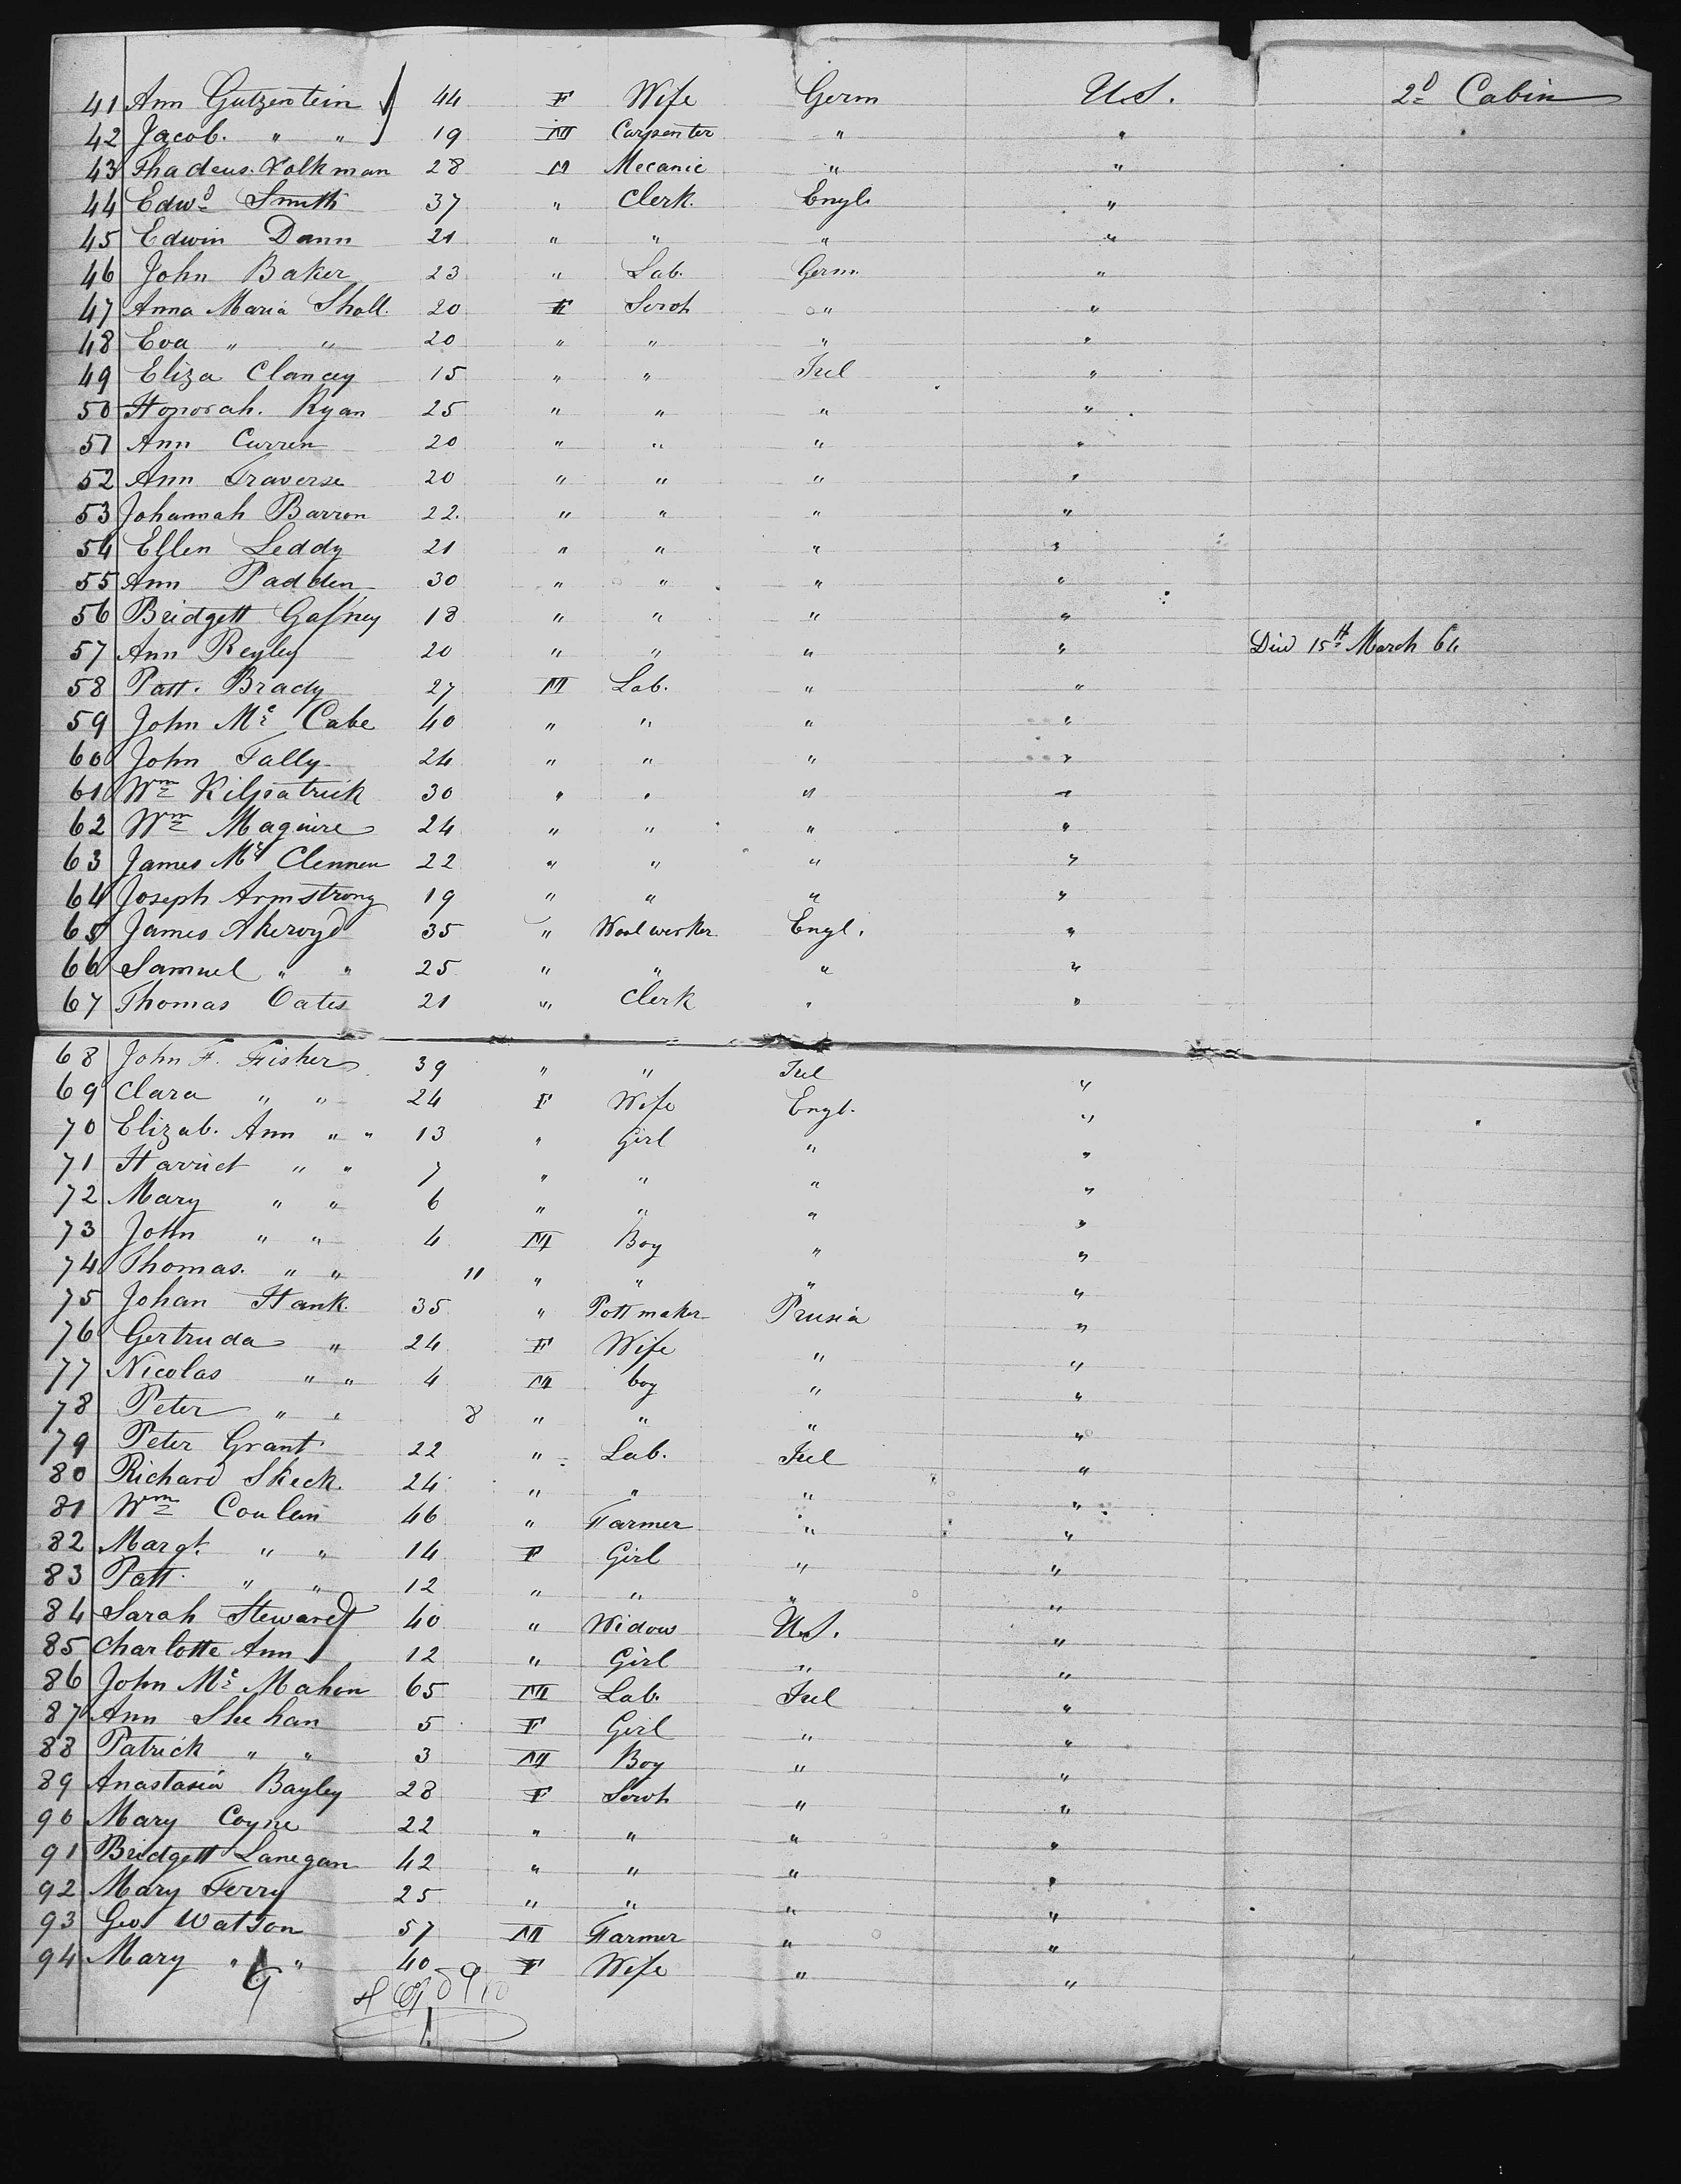 41 Ann Gutzentein 44 F Wife Germ U.S. 2d Cabin
42 Jacob. " " 19 M Carpenter " "
43 Thadeus. Volkman 28 M Mecanic " "
44 Edwd Smith 37 " Clerk. Engl. "
45 Edwin Dann 21 " " " "
46 John Baker 23 " Lab. Germ. "
47 Anna Maria Sholl. 20 F Servt " "
48 Eva " " 20 " " " "
49 Eliza Clancey 15 " " Irel "
50 Honorah. Ryan 25 " " " "
51 Ann Curren 20 " " " "
52 Ann Traverse 20 " " " "
53 Johannah Barron 22. " " " "
54 Ellen Leddy 21 " " " "
55 Ann Padden 30 " " " "
56 Bridgett Gafney 18 " " " "
57 Ann Reyley 20 " " " " Died 15th March 64
58 Patt. Brady 27 M Lab. " "
59 John Mc Cabe 40 " " " "
60 John Tally 24 " " " "
61 Wm Kilpatrick 30 " " " "
62 Wm Maguire 24 " " " "
63 James Mc Clennen 22 " " " "
64 Joseph Armstrong 19 " " " "
65 James Akeroyd 35 " Woolworker Engl. "
66 Samuel " " 25 " " " "
67 Thomas Oates 21 " Clerk " "
68 John F. Fisher 39 " " Irel "
69 Clara " " 24 F Wife Engl. "
70 Elizab. Ann " " 13 " Girl " "
71 Harriet " " 7 " " " "
72 Mary " " 6 " " " "
73 John " " 4 M Boy " "
74 Thomas. " " 11 " " " "
75 Johan Hank. 35 " Pottmaker Prusia "
76 Gertruda " 24 F Wife " "
77 Nicolas " " 4 M boy " "
78 Peter " " 8 " " " "
79 Peter Grant 22 " Lab. Irel "
80 Richard Skeck. 24 " " " "
81 Wm Conlen 46 " Farmer " "
82 Margt. " " 14 F Girl " "
83 Patt. " " 12 " " " "
84 Sarah Stewardt 40 " Widow U.S. "
85 Charlotte Ann 12 " Girl " "
86 John Mc Mahon 65 M Lab. Irel "
87 Ann Sheehan 5 F Girl " "
88 Patrick " " 3 M Boy " "
89 Anastasia Bayley 28 F Servt " "
90 Mary Coyne 22 " " " "
91 Bridgett Lanegan 42 " " " "
92 Mary Ferry 25 " " " "
93 Geo. Watson 57 M Farmer " "
94 Mary " " 40 F Wife " "